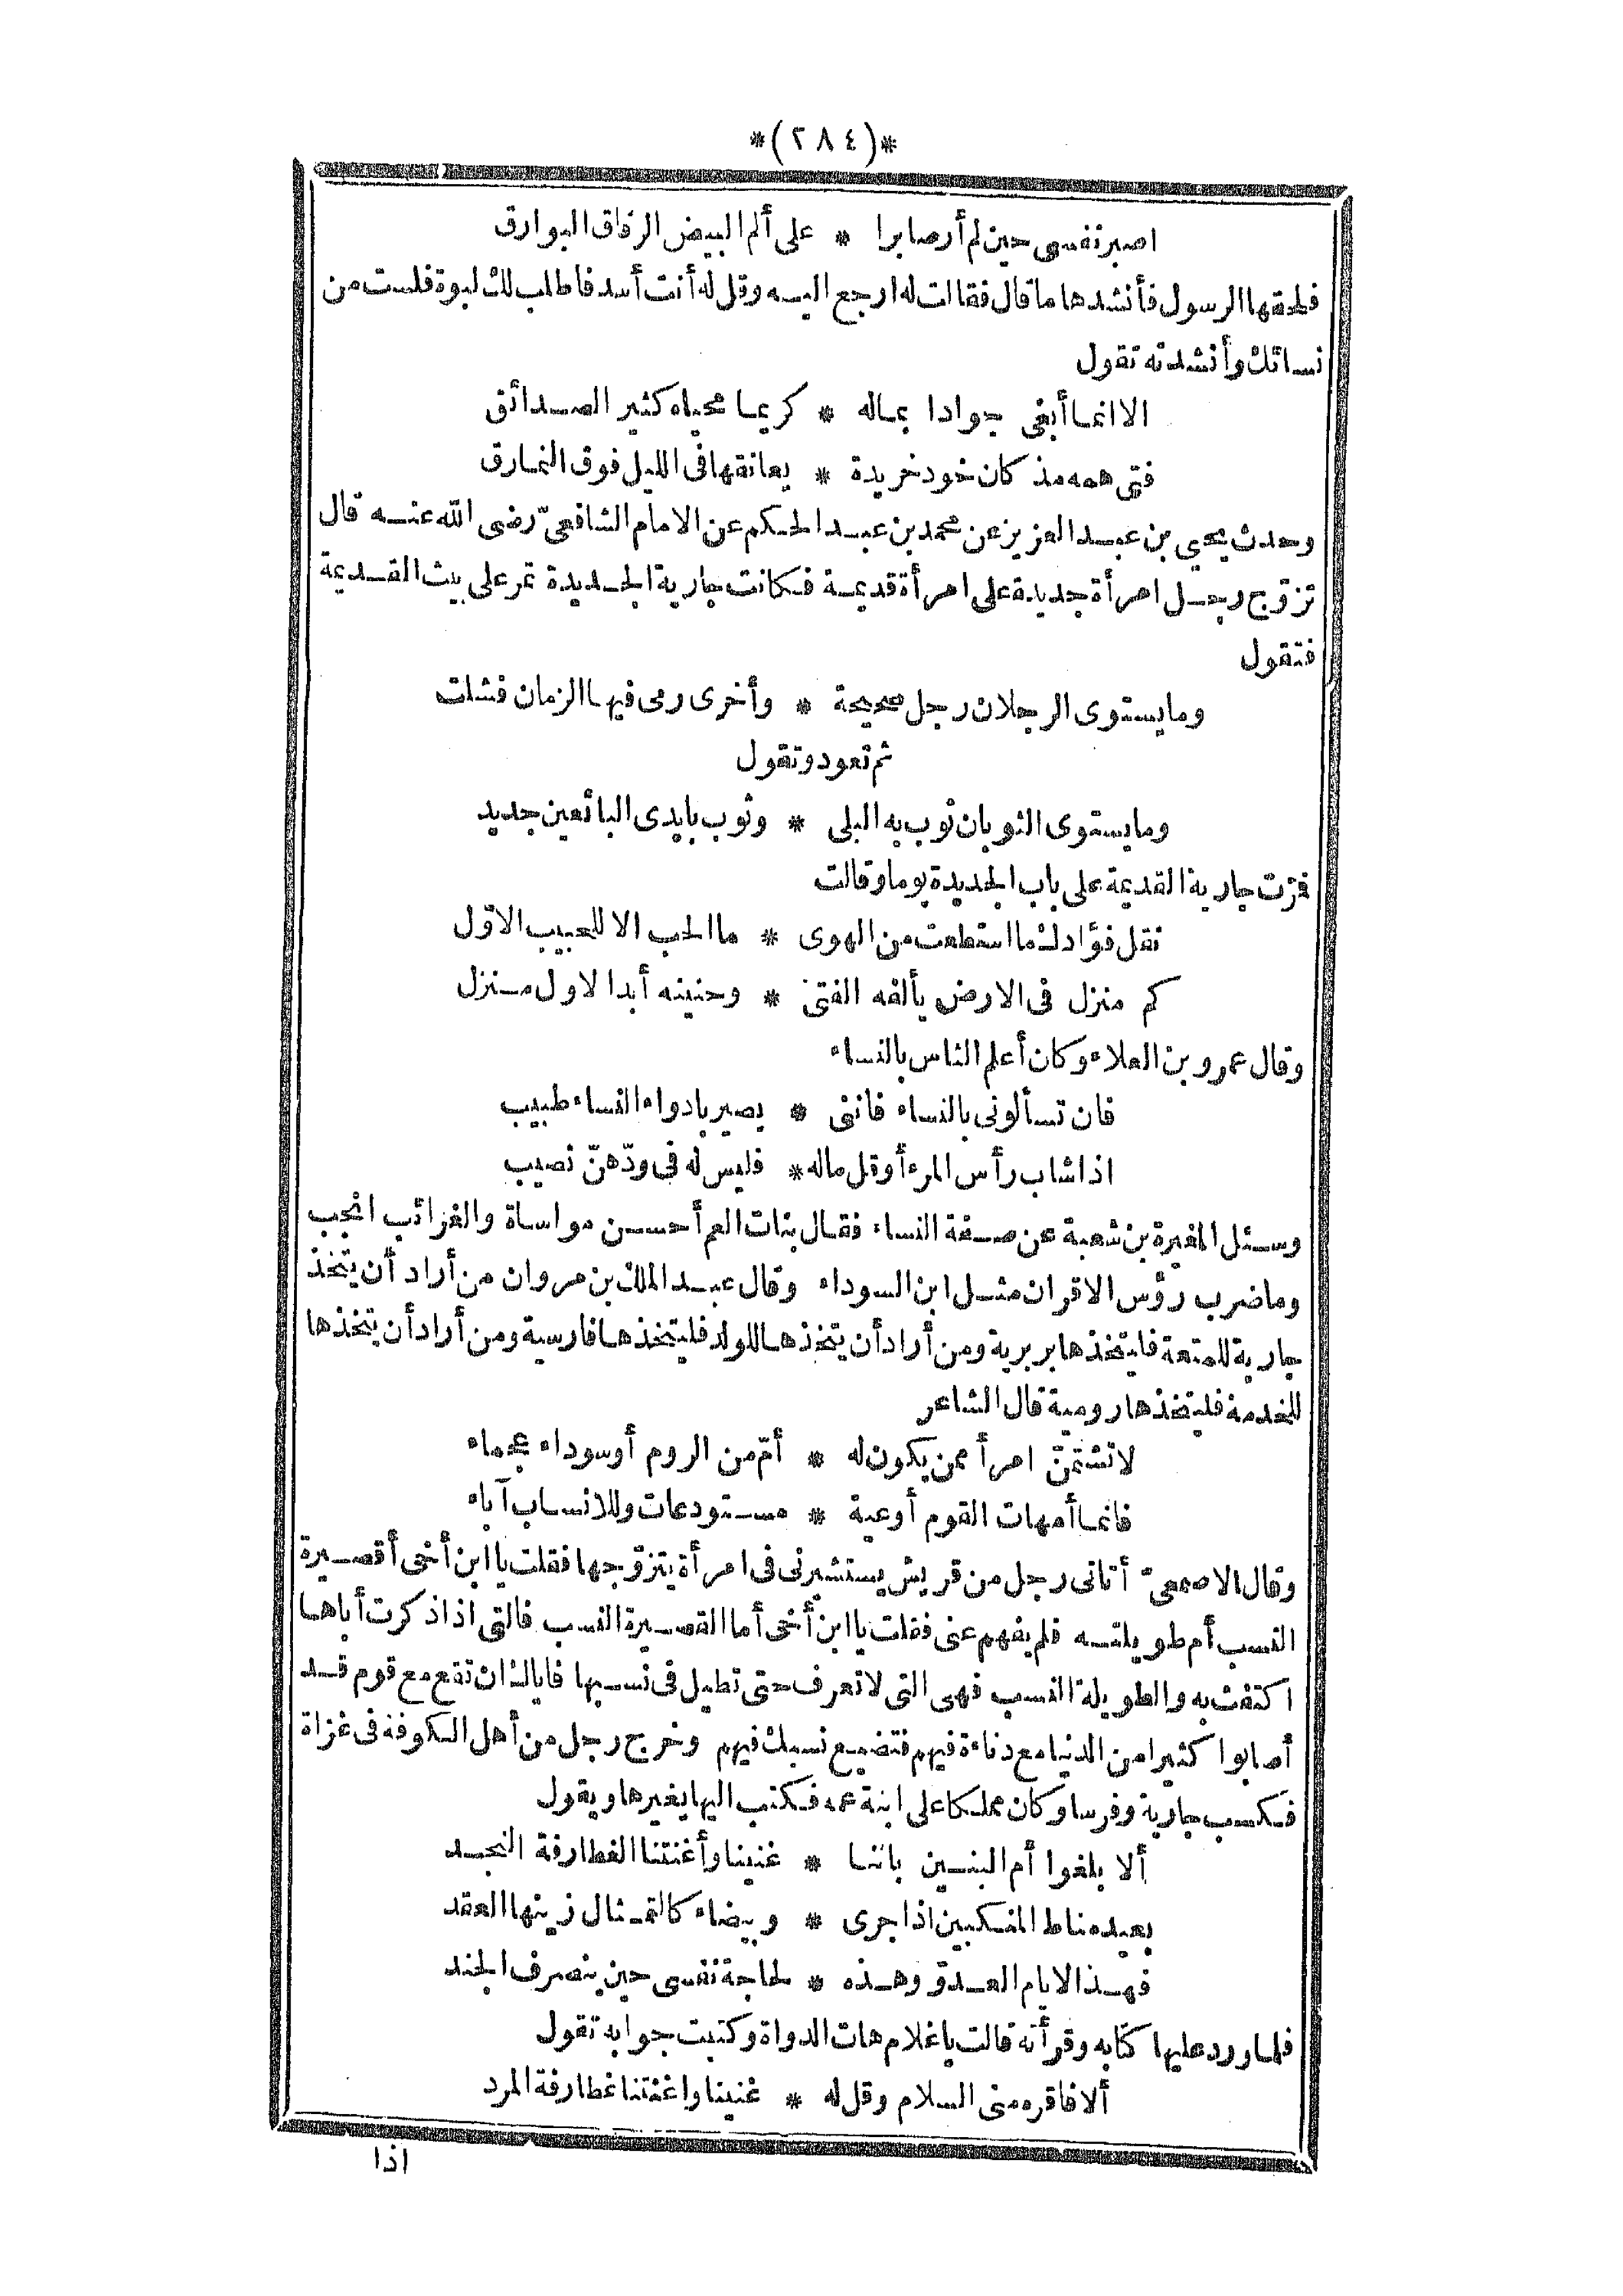 *(٢٨٤)*
اصبر نفسى حين لم أر صابرا * على ألم البيض الرقاق البوارق
فلحقها الرسول فأنشدها ما قال فقالت له ارجع اليه وقل له أنت أسد فاطلب لك لبوة فلست من
نسائك وأنشدته تقول
الا انما أبغى جوادا بماله * كريما محياه كثير الصدائق
فتى همه مذ كان خود خريدة * يعانقها فى الليل فوق النمارق
وحدث يحيى بن عبد العزيز عن محمد بن عبد الحكم عن الامام الشافعىّ رضى الله عنه قال
تزوّج رجل امرأة جديدة على امرأة قديمة فكانت جارية الجديدة تمر على بيت القديمة
فتقول
وما يستوى الرجلان رجل صحيحة * وأخرى رمى فيها الزمان فشلت
ثم تعود وتقول
وما يستوى الثوبان ثوب به البلى * وثوب بايدى البائعين جديد
فمرّت جارية القديمة على باب الجديدة يوما وقالت
نقل فؤادك ما استطعت من الهوى * ما الحب الا للحبيب الاوّل
كم منزل فى الارض يألفه الفتى * وحنينه أبدا لاول منزل
وقال عمرو بن العلاء وكان أعلم الناس بالنساء
فان تسألونى بالنساء فاننى * بصير بادواء النساء طبيب
اذا شاب رأس المرء أو قل ماله * فليس له فى ودّهنّ نصيب
وسئل المغيرة بن شعبة عن صفة النساء فقال بنات العم أحسن مواساة والغرائب انجب
وما ضرب رؤس الاقران مثل ابن السوداء وقال عبد الملك بن مروان من أراد أن يتخذ
جارية للمتعة فليتخذها بربرية ومن أراد أن يتخذها للولد فليتخذها فارسية ومن أراد أن يتخذها
للخدمة فليتخذها رومية قال الشاعر
لا تشتمنّ امرأ ممن يكون له * أمّ من الروم أو سوداء عجماء
فانما أمهات القوم أوعية * مستودعات وللانساب آباء
وقال الاصمعىّ أتانى رجل من قريش يستشيرنى فى امرأة يتزوّجها فقلت يا ابن أخى أقصيرة
النسب أم طويلته فلم يفهم عنى فقلت يا ابن أخى أما القصيرة النسب فالتى اذا ذكرت أباها
اكتفت به والطويلة النسب فهى التى لا تعرف حتى تطيل فى نسبها فاياك ان تقع مع قوم قد
أصابوا كثيرا من الدنيا مع دناءة فيهم فتضيع نسبك فيهم وخرج رجل من أهل الكوفة فى غزاة
فكسب جارية وفرسا وكان مملكا على ابنة عمه فكتب اليها يغيرها ويقول
ألا بلغوا أم البنين باننا * غنينا وأغنتنا الغطارفة النجد
بعيد مناط المنكبين اذا جرى * وبيضاء كالتمثال زينها العقد
فهذا لايام العدوّ وهذه * لحاجة نفسى حين ينصرف الجند
فلما ورد عليها كتابه وقرأته قالت يا غلام هات الدواة وكتبت جوابه تقول
ألا فاقره منى السلام وقل له * غنينا واغنتنا غطارفة المرد
اذا